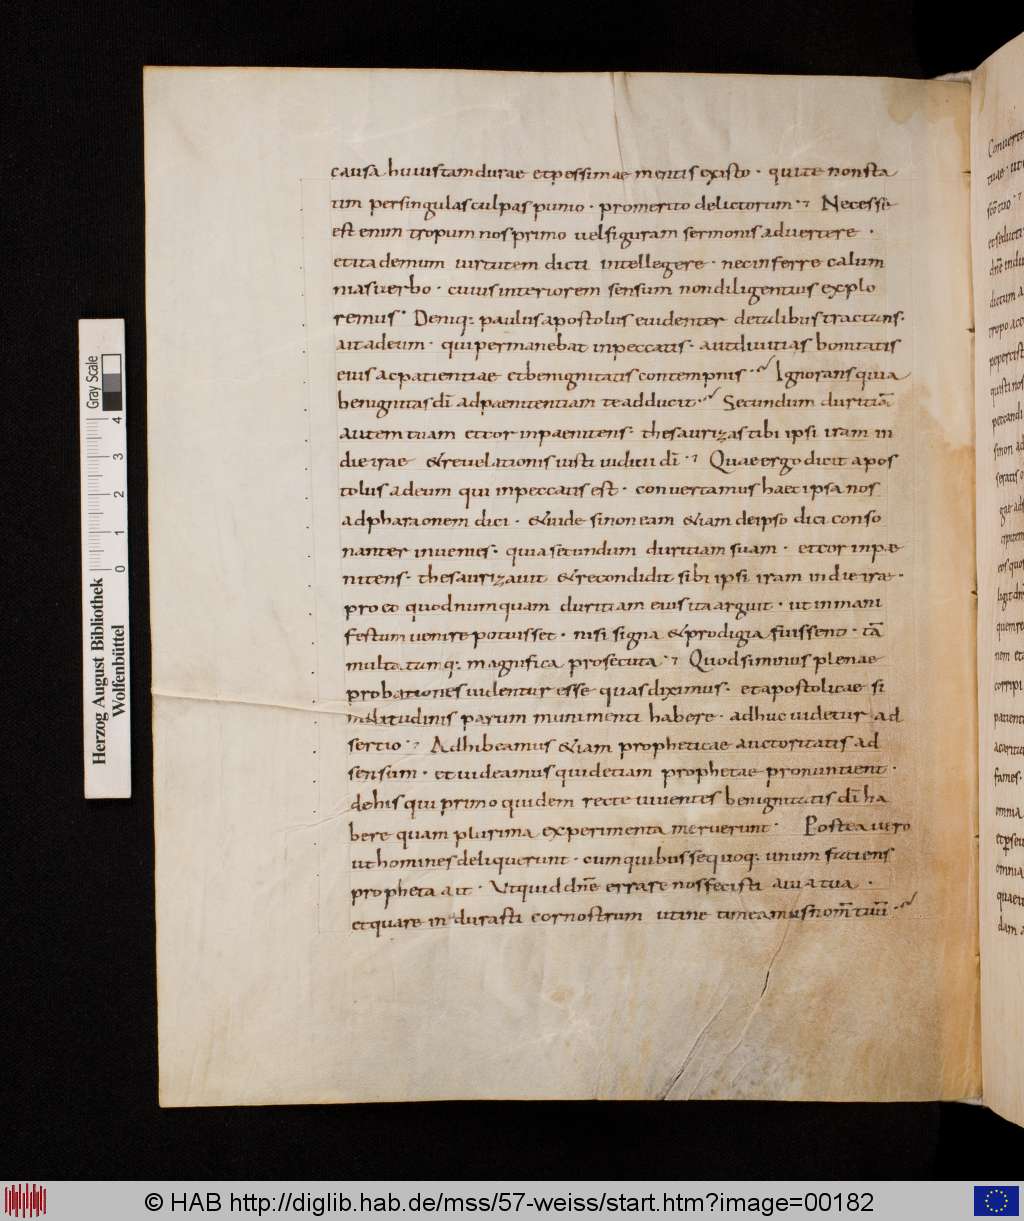 causa huius tam durae et pessimae mentis existo · qui te non sta
tim per singulas culpas punio · pro merito delictorum · Necesse
est enim tropum nos primo uel figuram sermonis aduertere ·
et ita demum uirtutem dicti intellegere · nec inferre calum
nias uerbo · cuius interiorem sensum non diligentius explo
remus · Deniq; paulus apostolus euidenter de talibus tractans ·
ait ad eum · qui permanebat in peccatis · aut diuitias bonitatis
eius ac patientiae et benignitatis contempnis · Ignorans quia
benignitas dī ad paenitentiam te adducit · Secundum duritiā
autem tuam et cor inpaenitens · thesaurizas tibi ipsi iram in
die irae & reuelationis iusti iudicii dī · Quae ergo dicit apos
tolus ad eum qui in peccatis est · conuertamus haec ipsa nos
ad pharaonem dici · & uide si non eam &iam de ipso dici conso
nanter inuenies · quia secundum duritiam suam · et cor inpæ
nitens · thesaurizauit & recondidit sibi ipsi iram in die iræ ·
pro eo quod numquam duritiam eius ita arguit · ut in mani
festum uenire potuisset · nisi signa & prodigia fuissent · tā
multa tamq; magnifica prosecuta · Quod si minus plenae
probationes uidentur esse quas diximus · et apostolicae si
militudinis parum munimenti habere · adhuc uidetur ad
sertio · Adhibeamus &iam propheticae auctoritatis ad
sensum · et uideamus quid etiam prophetae pronuntient ·
de his qui primo quidem recte uiuentes benignitatis dī ha
bere quam plurima experimenta meruerunt · Postea uero
ut homines deliquerunt · cum quibus se quoq; unum faciens
propheta ait · Ut quid dn̄e errare nos fecisti a uia tua ·
et quare indurasti cor nostrum ut ne timeamus nom̄ tuū ·
Herzog August Bibliothek
Wolfenbüttel
Gray Scale
0 1 2 3 4
© HAB http://diglib.hab.de/mss/57-weiss/start.htm?image=00182